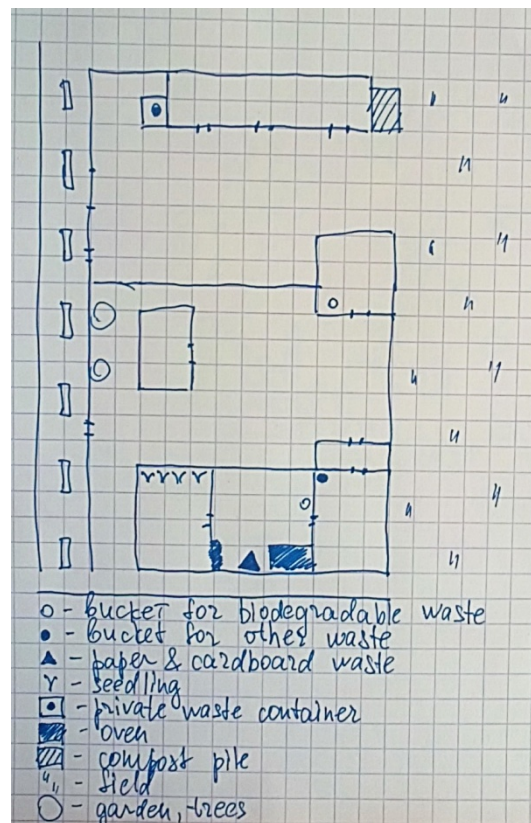 o - bucket for biodegradable waste
● - bucket for other waste
▲ - paper & cardboard waste
Y - seedling
- private waste container
- oven
- compost pile
- field
- garden, trees